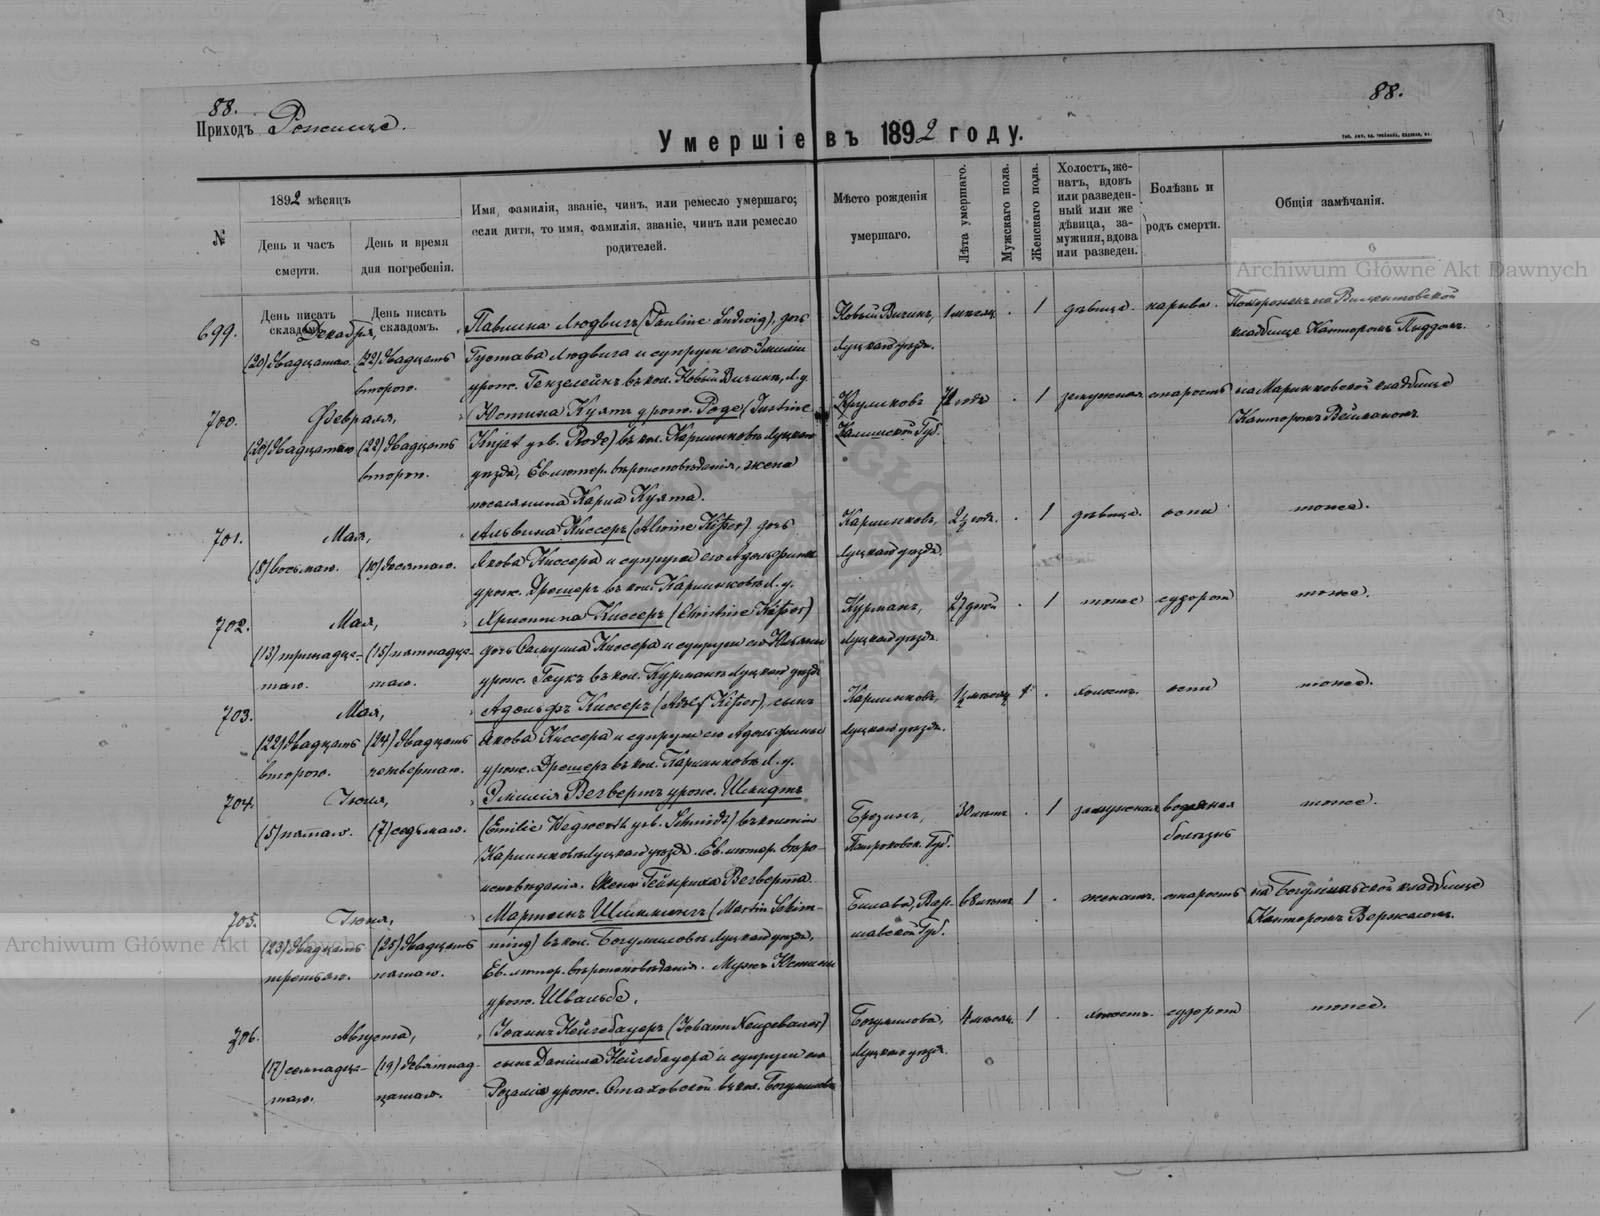 88.
88.
Приходъ Рожище.
Умершіе въ 1892 году.
№
1892 мѣсяцъ
День и часъ смерти.
День и время дня погребенія.
Имя, фамилія, званіе, чинъ, или ремесло умершаго;
если дитя, то имя, фамилія, званіе, чинъ или ремесло
родителей.
Мѣсто рожденія
умершаго.
Лѣта умершаго.
Мужскаго пола.
Женскаго пола.
Холостъ, же-
натъ, вдовъ
или разведен-
ный или же
дѣвица, за-
мужняя, вдова
или разведен.
Болѣзнь и
родъ смерти.
Общія замѣчанія.
Archiwum Główne Akt Dawnych
День писать складомъ.
День писать складомъ.
699.
Декабря,
(20) двадцатаго. (22) двадцать
второго.
Павлина Людвигъ (Pauline Ludwig), дочь
Густава Людвига и супруги его Эмиліи
урож. Гензелейнъ въ кол. Новый Вичинъ, Л. у.
Новый Вичинъ,
Луцкаго уѣзда.
1 мѣсяц . 1 дѣвица. нарывъ.
Похороненъ на
кладбище Канторомъ
700.
Февраля,
(20) двадцатаго (22) двадцать
второго.
Юстина Куятъ урож. Роде (Justine
Kujat geb. Rode) въ кол. Каршинковъ Луцкаго
уѣзда, Ев. лютер. вѣроисповѣданія, жена
поселянина Карла Куята.
Круликовъ
Калишской Губ.
72 года . 1 замужная старость
на Маринковской кладбище
Канторомъ
701.
Мая,
(8) восьмаго. (10) десятаго.
Альвина Киссеръ (Alwine Kißer), дочь
Якова Киссера и супруги его Адольфины
урож. Дрешеръ въ кол. Каршинковъ Л. у.
Каршинковъ,
Луцкаго уѣзда.
2½ года. . 1 дѣвица. оспы тоже.
702.
Мая,
(13) тринадца-
таго.
(15) пятнадца-
таго.
Христина Киссеръ (Christine Kißer)
дочь Самуила Киссера и супруги его Юліаны
урож. Гаукъ въ кол. Курманъ Луцкаго уѣзда
Курманъ,
Луцкаго уѣзда.
27 дней . 1 тоже судорогъ тоже.
703.
Мая,
(22) двадцать
второго.
(24) двадцать
четвертаго.
Адольфъ Киссеръ (Adolf Kißer), сынъ
Якова Киссера и супруги его Адольфины
урож. Дрешеръ въ кол. Каршинковъ Л. у.
Каршинковъ,
Луцкаго уѣзда.
1½ мѣсяц 1 . холостъ. оспы тоже.
704.
Іюня,
(5) пятаго. (7) седьмаго.
Эмилія Вегвертъ урож. Шмидтъ
(Emilie Wegwerth geb. Schmidt) въ колоніи
Каршинковъ Луцкаго уѣзда. Ев. лютер. вѣро-
исповѣданія. Жена Гейнриха Вегверта.
Брезинъ,
Петроковск. Губ.
30 лѣтъ . 1 замужная водяная
болѣзнь
тоже.
705.
Іюня,
(23) двадцать
третьяго.
(25) двадцать
пятаго.
Мартынъ Шимингъ (Martin Schim-
ming) въ кол. Богумиловъ Луцкаго уѣзда,
Ев. лютер. вѣроисповѣданія. Мужъ Юстины
урож. Швальбе.
Билава, Вар-
шавской Губ.
68 лѣтъ 1 . женатъ. старость
на кладбище
Канторомъ
Archiwum Główne Akt Dawnych
706.
Августа,
(17) семнадца-
таго.
(19) девятнад-
цатаго.
Іоанъ Нейгебауеръ (Johann Neugebauer)
сынъ Даніила Нейгебауера и супруги его
Розаліи урож. Стаховской въ кол. Богумиловъ
Богумиловъ,
Луцкаго уѣзда.
4 мѣсяц. 1 . холостъ. судорогъ тоже.